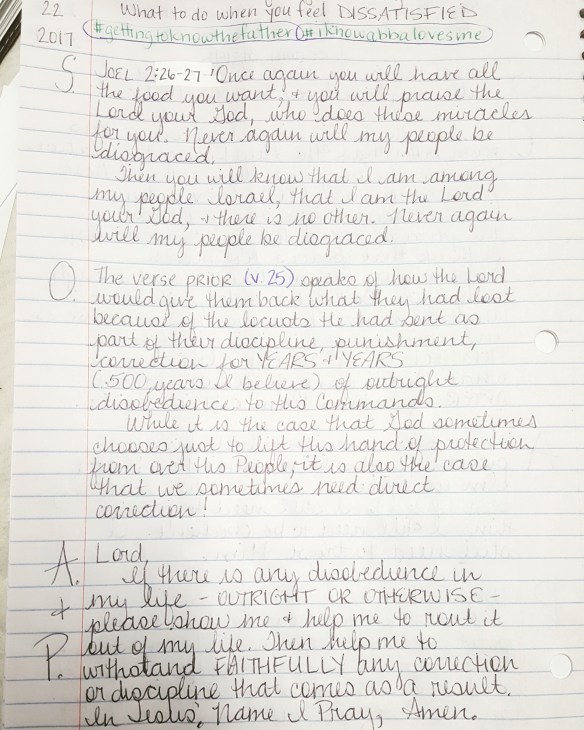 22 What to do when you feel DISSATISFIED
2017 #gettingtoknowthefather #iknowabbalovesme
S. JOEL 2:26-27 "Once again you will have all
the food you want, & you will praise the
Lord your God, who does these miracles
for you. Never again will my people be
disgraced.
Then you will know that I am among
my people Israel, that I am the Lord
your God, & there is no other. Never again
will my people be disgraced.
O. The verse PRIOR (v. 25) speaks of how the Lord
would give them back what they had lost
because of the locusts He had sent as
part of their discipline, punishment,
correction for YEARS & YEARS
(.500 years I believe) of outright
disobedience to His Commands.
While it is the case that God sometimes
chooses just to lift His hand of protection
from over His People, it is also the case
that we sometimes need direct
correction!
A. Lord,
If there is any disobedience in
& my life - OUTRIGHT OR OTHERWISE -
please show me & help me to rout it
P. out of my life. Then help me to
withstand FAITHFULLY any correction
or discipline that comes as a result.
In Jesus' Name I Pray, Amen.